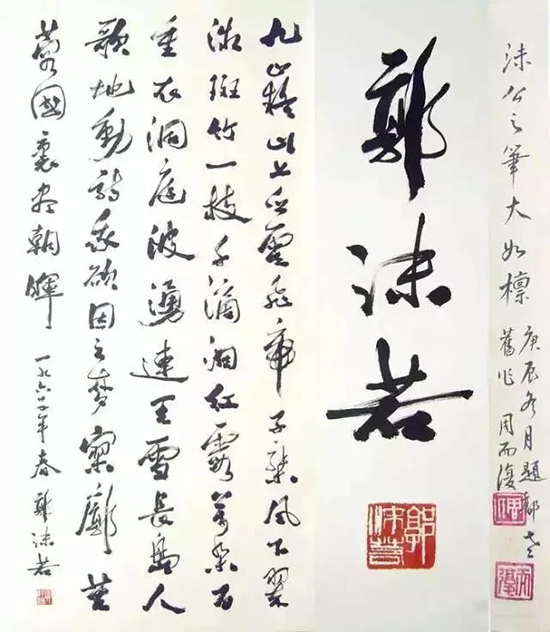 沫公之筆大如椽
庚辰冬月題郭老
舊作 周而復
郭沫若
郭沫若
九嶷山上白雲飛帝子乘風下翠
微斑竹一枝千滴淚紅霞萬朵百
重衣洞庭波湧連天雪長島人
歌地動詩我欲因之夢寥廓芙
蓉國裏盡朝暉 一九六二年春 郭沫若